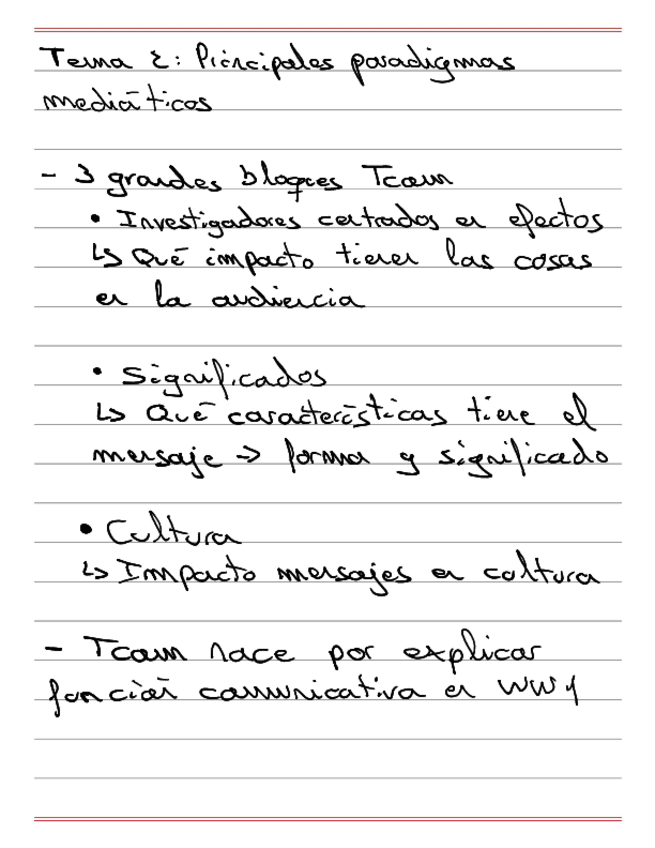 Tema 2: Principales paradigmas
mediáticos
- 3 grandes bloques Tcom
• Investigadores centrados en efectos
↳ Qué impacto tienen las cosas
en la audiencia
• Significados
↳ Qué características tiene el
mensaje → forma y significado
• Cultura
↳ Impacto mensajes en cultura
- Tcom nace por explicar
función comunicativa en WW1